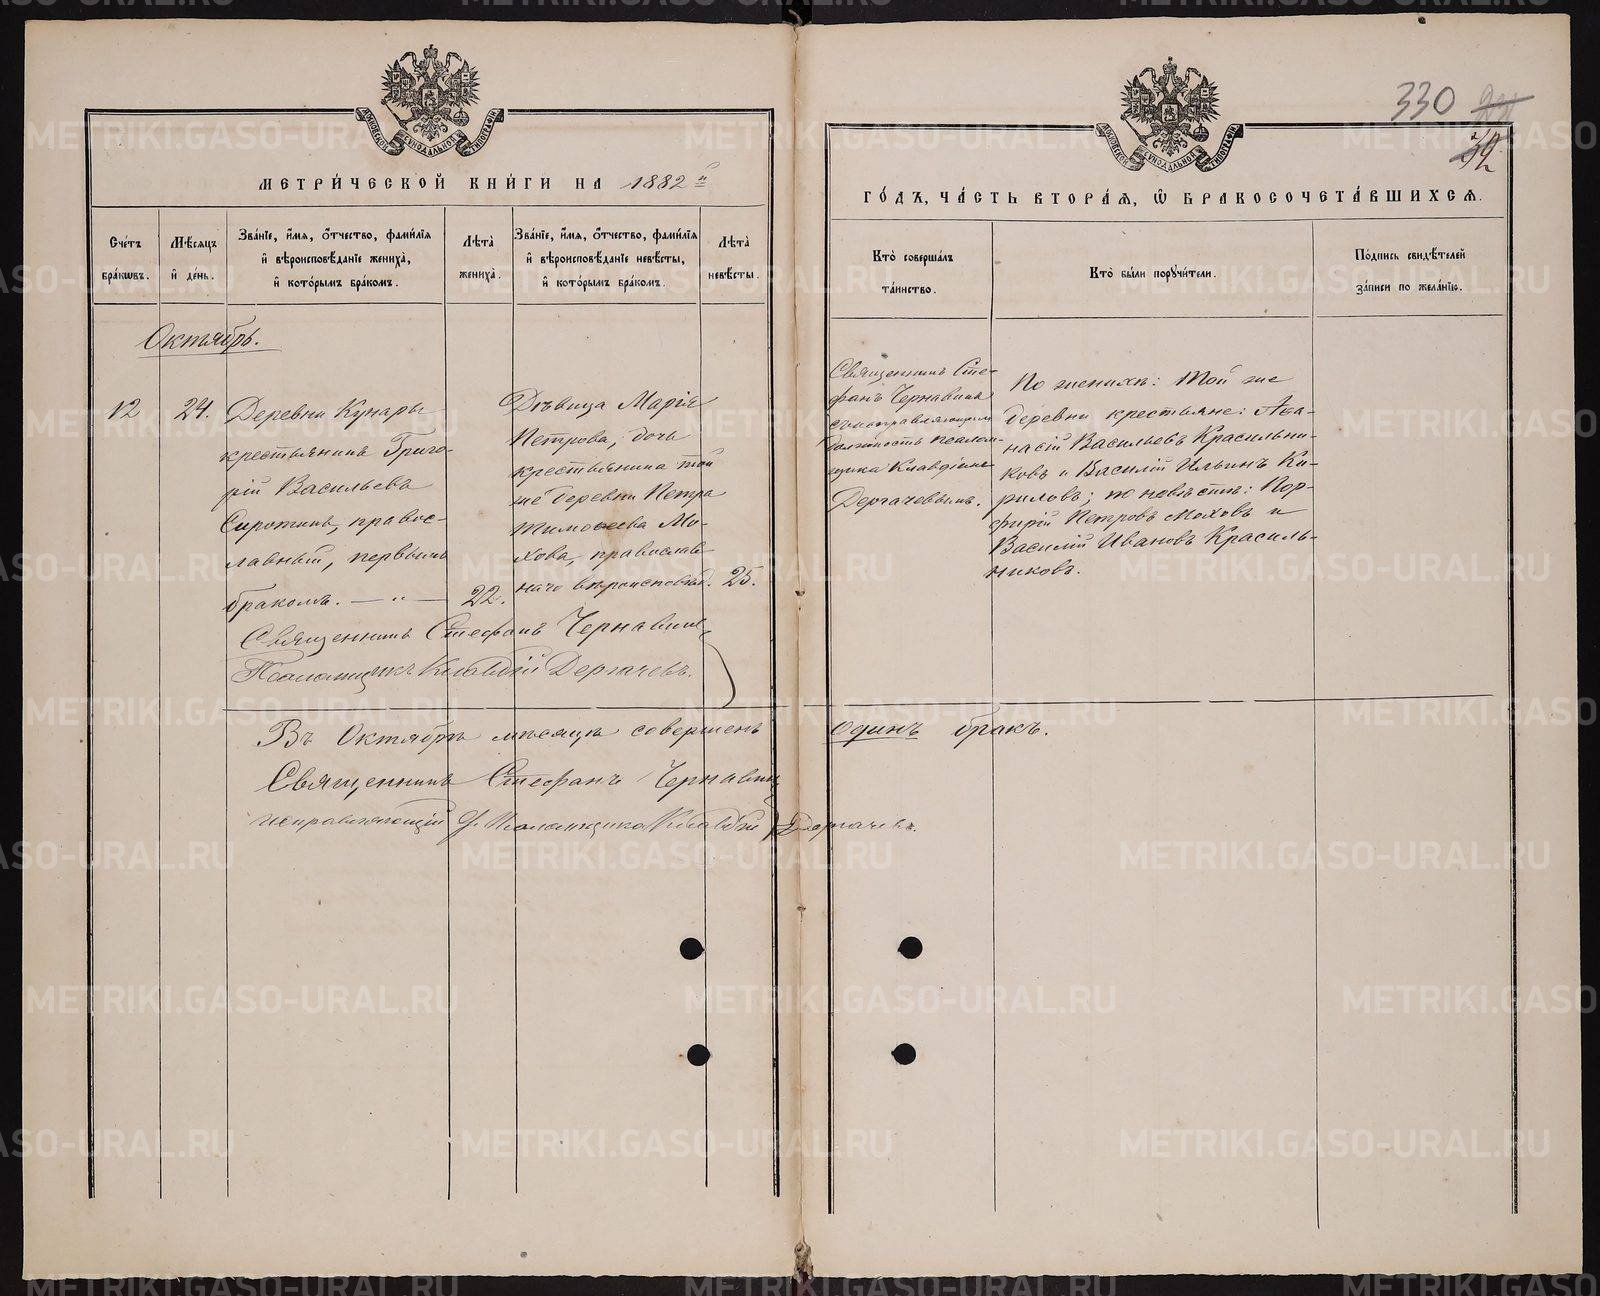 330
32
МЕТРИ́ЧЕСКОЙ КНИ́ГИ НА 1882 й
ГО́ДЪ, ЧА́СТЬ ВТОРА́Я, Ѡ БРАКОСОЧЕТА́ВШИХСЯ.
МОСКОВСКОЙ СѴНОДАЛЬНОЙ ТИПОГРАФІИ
МОСКОВСКОЙ СѴНОДАЛЬНОЙ ТИПОГРАФІИ
Сче́тъ бра́кѡвъ.
Мѣ́сяцъ и де́нь.
Зва́нїе, и́мя, ѻ́тчество, фами́лїя и вѣроисповѣ́данїе жениха̀, и кото́рымъ бра́комъ.
Лѣ́та жениха̀.
Зва́нїе, и́мя, ѻ́тчество, фами́лїя и вѣроисповѣ́данїе невѣ́сты, и кото́рымъ бра́комъ.
Лѣ́та невѣ́сты.
Кто̀ соверша́лъ та́инство.
Кто̀ бы́ли поручи́тели.
По́дпись свидѣ́телей за́писи по жела́нїю.
Октябрь.
12
24.
Деревни Кунары
крестьянинъ Григо-
рій Васильевъ
Сиротинъ, правос-
лавный, первымъ
бракомъ. — „ —
22.
Дѣвица Марія
Петрова, дочь
крестьянина той
же деревни Петра
Тимоѳеева Мо-
хова, православ
наго вѣроисповѣд.
25.
Священникъ Сте-
фанъ Чернавинъ
съ исправляющимъ
должность псалом-
щика Клавдіемъ
Дергачевымъ.
По женихѣ: Той же
деревни крестьяне: Аѳа-
насій Васильевъ Красильни-
ковъ и Василій Ильинъ Ки-
риловъ; по невѣстѣ: Пор-
фирій Петровъ Моховъ и
Василій Ивановъ Красиль-
никовъ.
Священникъ Стефанъ Чернавинъ
Псаломщикъ Клавдій Дергачевъ.
Въ Октябрѣ мѣсяцѣ совершенъ одинъ бракъ.
Священникъ Стефанъ Чернавинъ
исправляющій д. Псаломщика Клавдій Дергачевъ.
METRIKI.GASO-URAL.RU